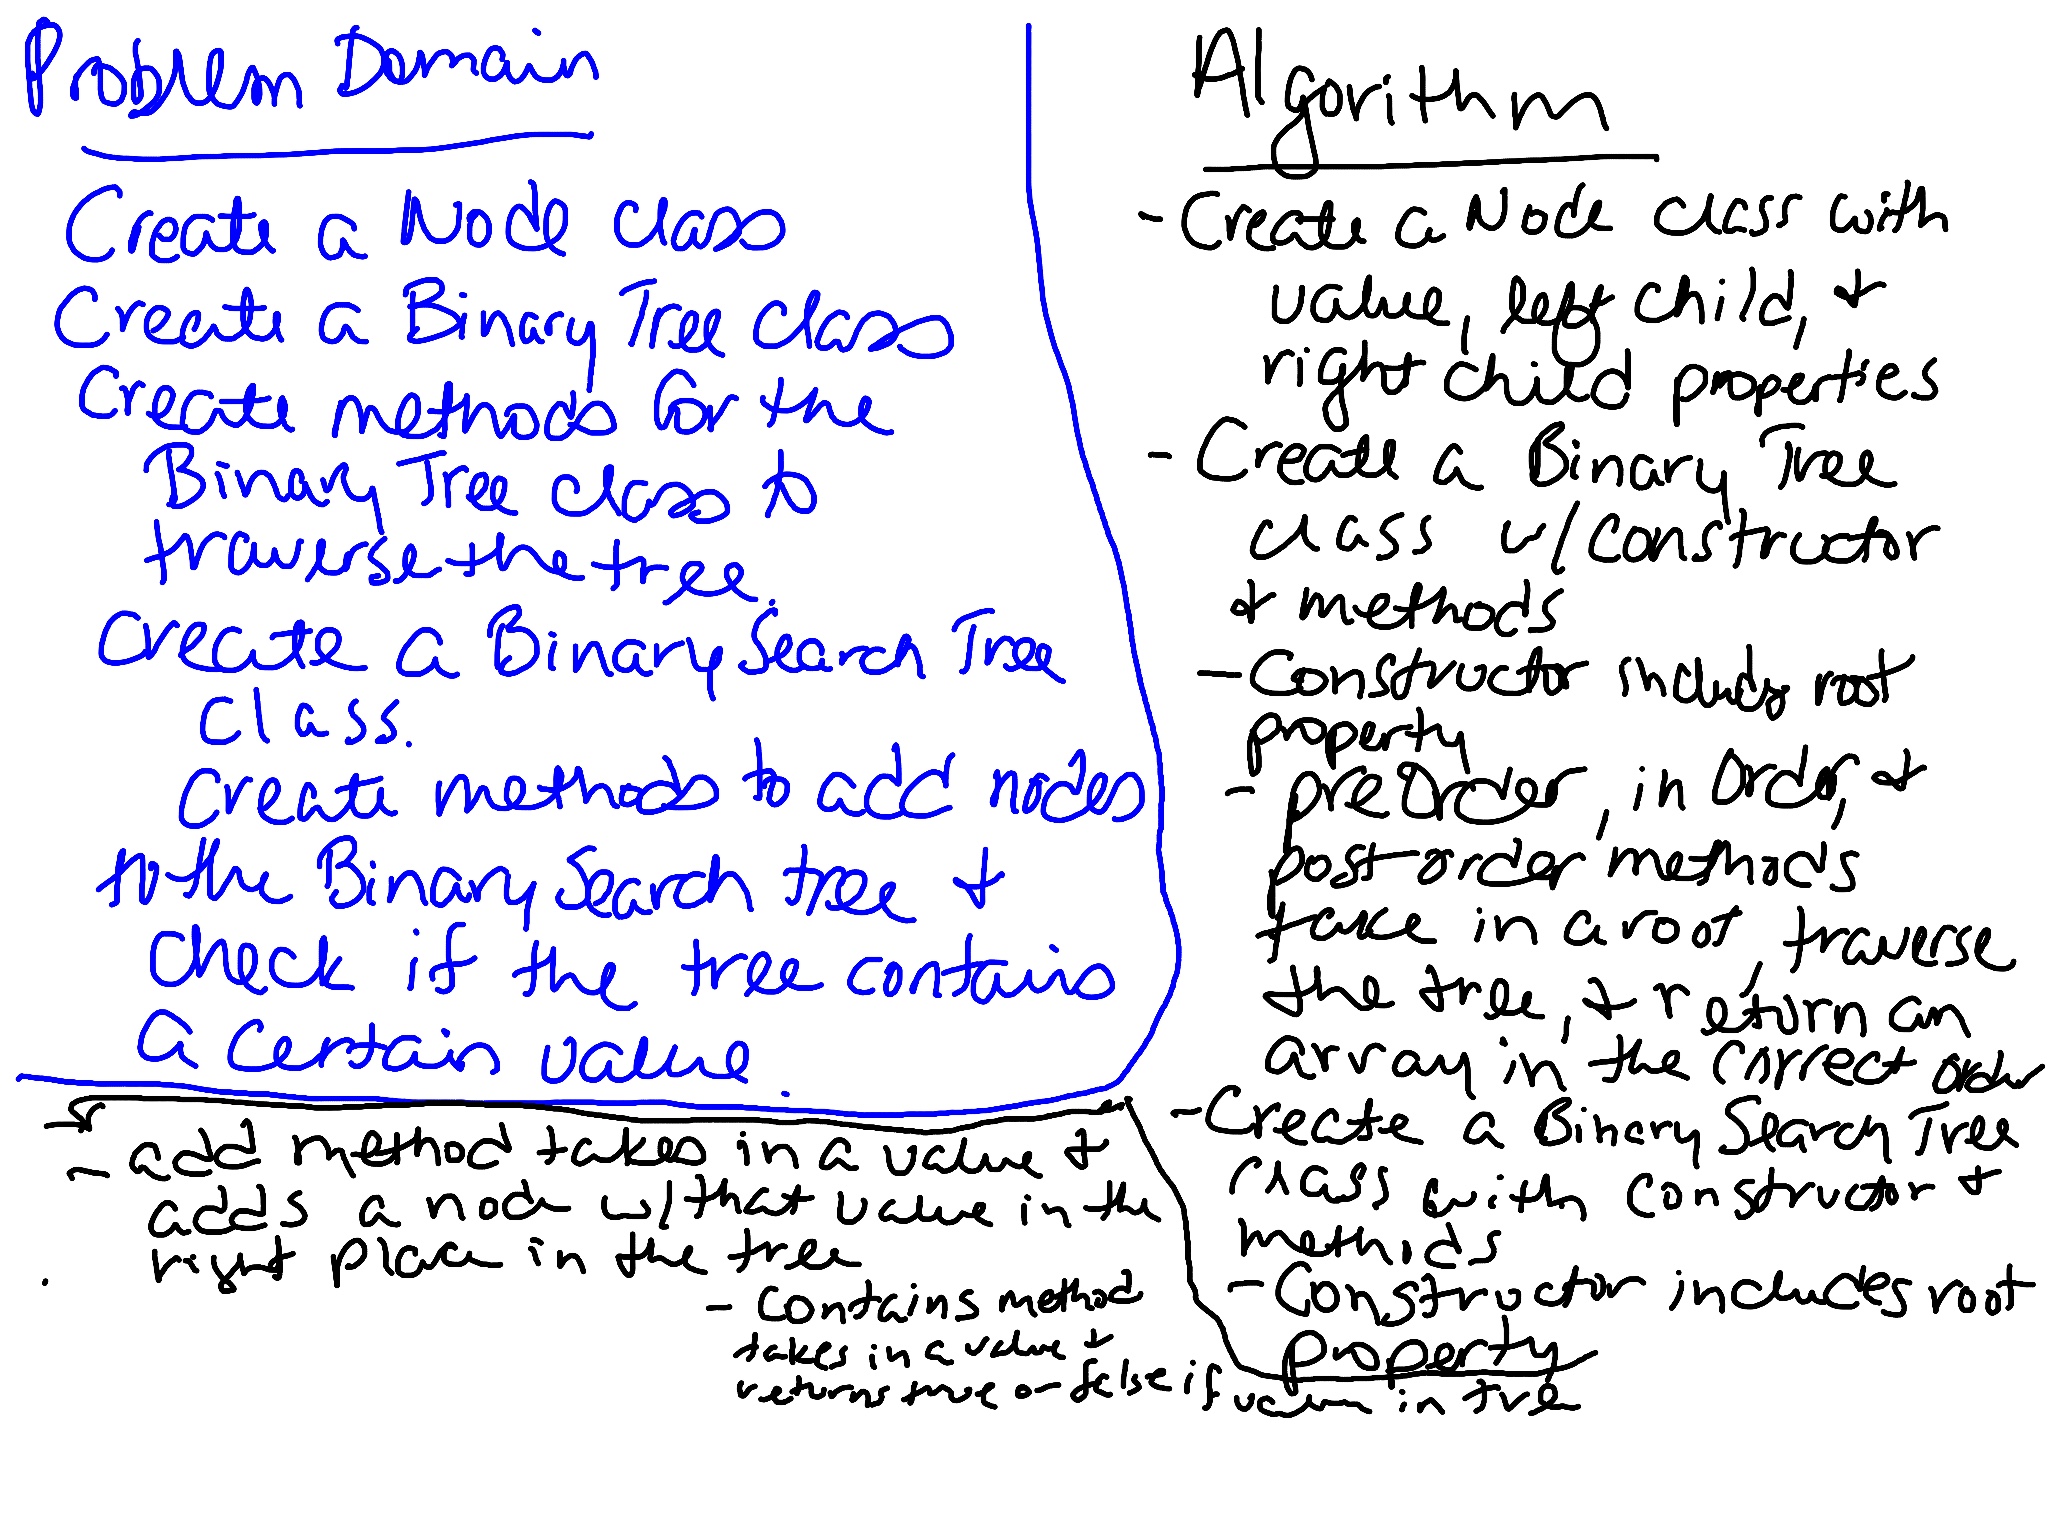 Problem Domain
Create a Node class
Create a Binary Tree class
Create methods for the
Binary Tree class to
traverse the tree.
Create a Binary Search Tree
class.
Create methods to add nodes
to the Binary Search tree &
check if the tree contains
a certain value.
Algorithm
- Create a Node class with
value, left child, &
right child properties
- Create a Binary Tree
class w/ constructor
& methods
- Constructor includes root
property
- preOrder, inOrder, &
post-order methods
take in a root, traverse
the tree, & return an
array in the correct order
- Create a Binary Search Tree
class with constructor &
methods
- Constructor includes root
property
- add method takes in a value &
adds a node w/ that value in the
right place in the tree
- Contains method
takes in a value &
returns true or false if value in tree